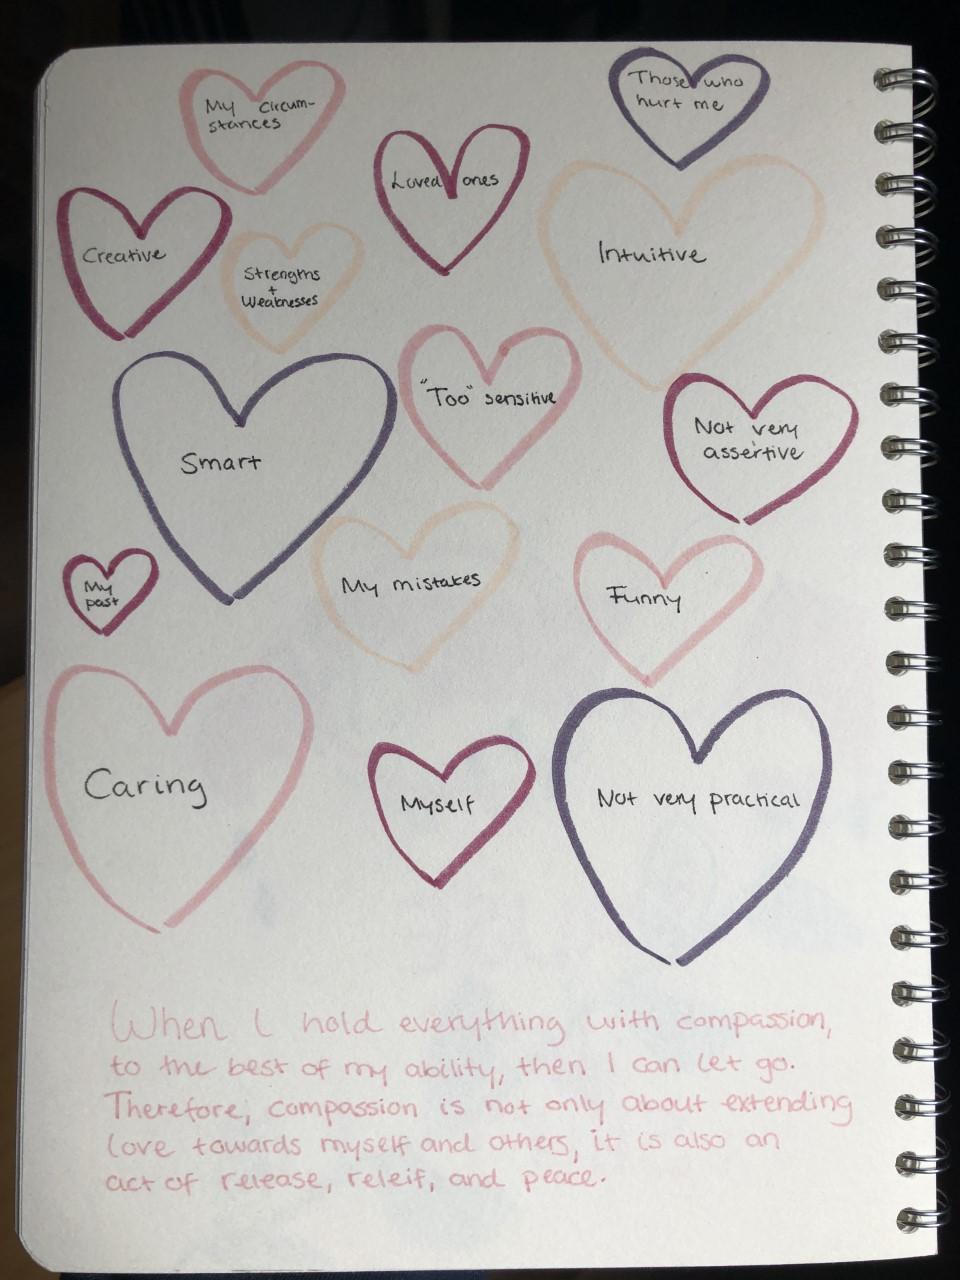 My circum-
stances
Those who
hurt me
Loved ones
Creative
Strengths
+
Weaknesses
Intuitive
"Too" sensitive
Not very
assertive
Smart
My
past
My mistakes
Funny
Caring
Myself
Not very practical
When I hold everything with compassion,
to the best of my ability, then I can let go.
Therefore, compassion is not only about extending
love towards myself and others, it is also an
act of release, releif, and peace.